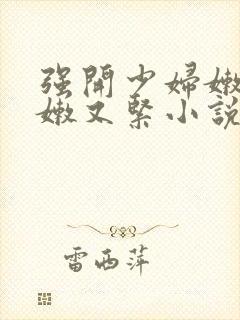 强開少婦嫩
嫩又緊小說
雷西萍